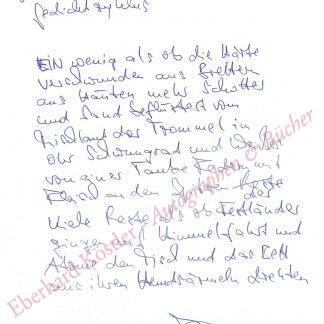 Gedichtzyklus
EIN wenig als ob die Härte
verschwunden aus Brettern
aus Häuten mehr Schotter
und Sand geflüstert vom
das Trommel in
Ohr Schwungrad und
von einer Taube Federn mit
an den
viele Reste als ob Festländer
gingen auf Himmelfahrt und
Atome den Tisch und das Bett
aus ihren Hemdsärmeln drehten
Eberhard Köstler / Autographen & Bücher